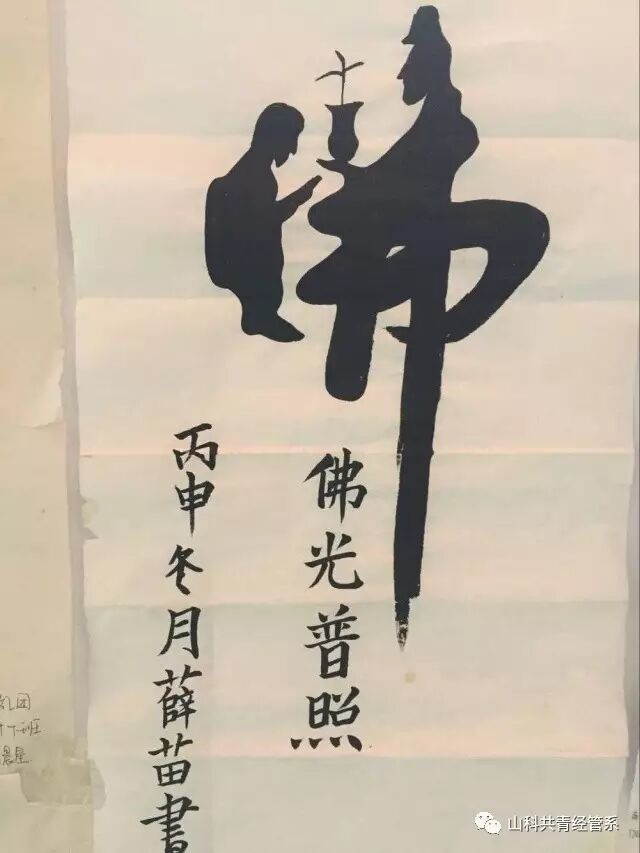 佛
佛光普照
丙申冬月薛苗書
山科共青经管系